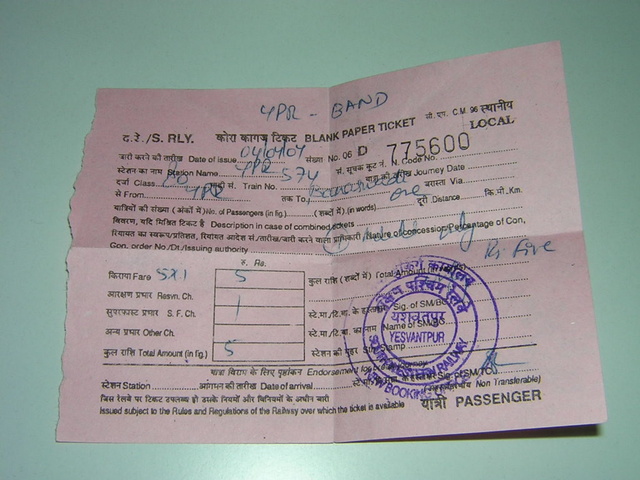 YPR - BAND
द.रे./S. RLY. कोरा कागज टिकट BLANK PAPER TICKET सी. एम. C.M. 96 स्थानीय
LOCAL
जारी करने की तारीख Date of issue 04/04/04 संख्या No. 06 D 775600
स्टेशन का नाम Station Name YPR 574 स. सूचक कूट नं. N. Code No.
दर्जा Class Train No. Journey Date
से From YPR तक To, one बरास्ता Via
दूरी Distance कि.मी. Km.
यात्रियों की संख्या (अंकों में) No. of Passengers (in fig.) (शब्दों में) (in words)
विवरण, यदि मिश्रित टिकट है Description in case of combined tickets
रियायत का स्वरूप/प्रतिशत, रियायत आदेश सं./तारीख/जारी करने वाला प्राधिकारी Nature of concession/Percentage of Con,
Con. order No/Dt./Issuing authority
Rs Five
रु. Rs.
किराया Fare 5X1 5 कुल राशि (शब्दों में) Total Amount
आरक्षण प्रभार Resvn. Ch.
सुपरफास्ट प्रभार S. F. Ch. 1 Sig. of SM/BC
अन्य प्रभार Other Ch. Name of SM/BC
कुल राशि Total Amount (in fig.) 5 स्टेशन की मुहर Stn. Stamp
दक्षिण पश्चिम रेलवे
यशवंतपुर
YESVANTPUR
SOUTH WESTERN RAILWAY
BOOKING
यात्रा विराम के लिए पृष्ठांकन Endorsement for
स्टेशन Station आगमन की तारीख Date of arrival Sig. of SM/TC
Non Transferable)
जिस रेलवे पर टिकट उपलब्ध हो उसके नियमों और विनियमों के अधीन जारी
Issued subject to the Rules and Regulations of the Railway over which the ticket is available यात्री PASSENGER